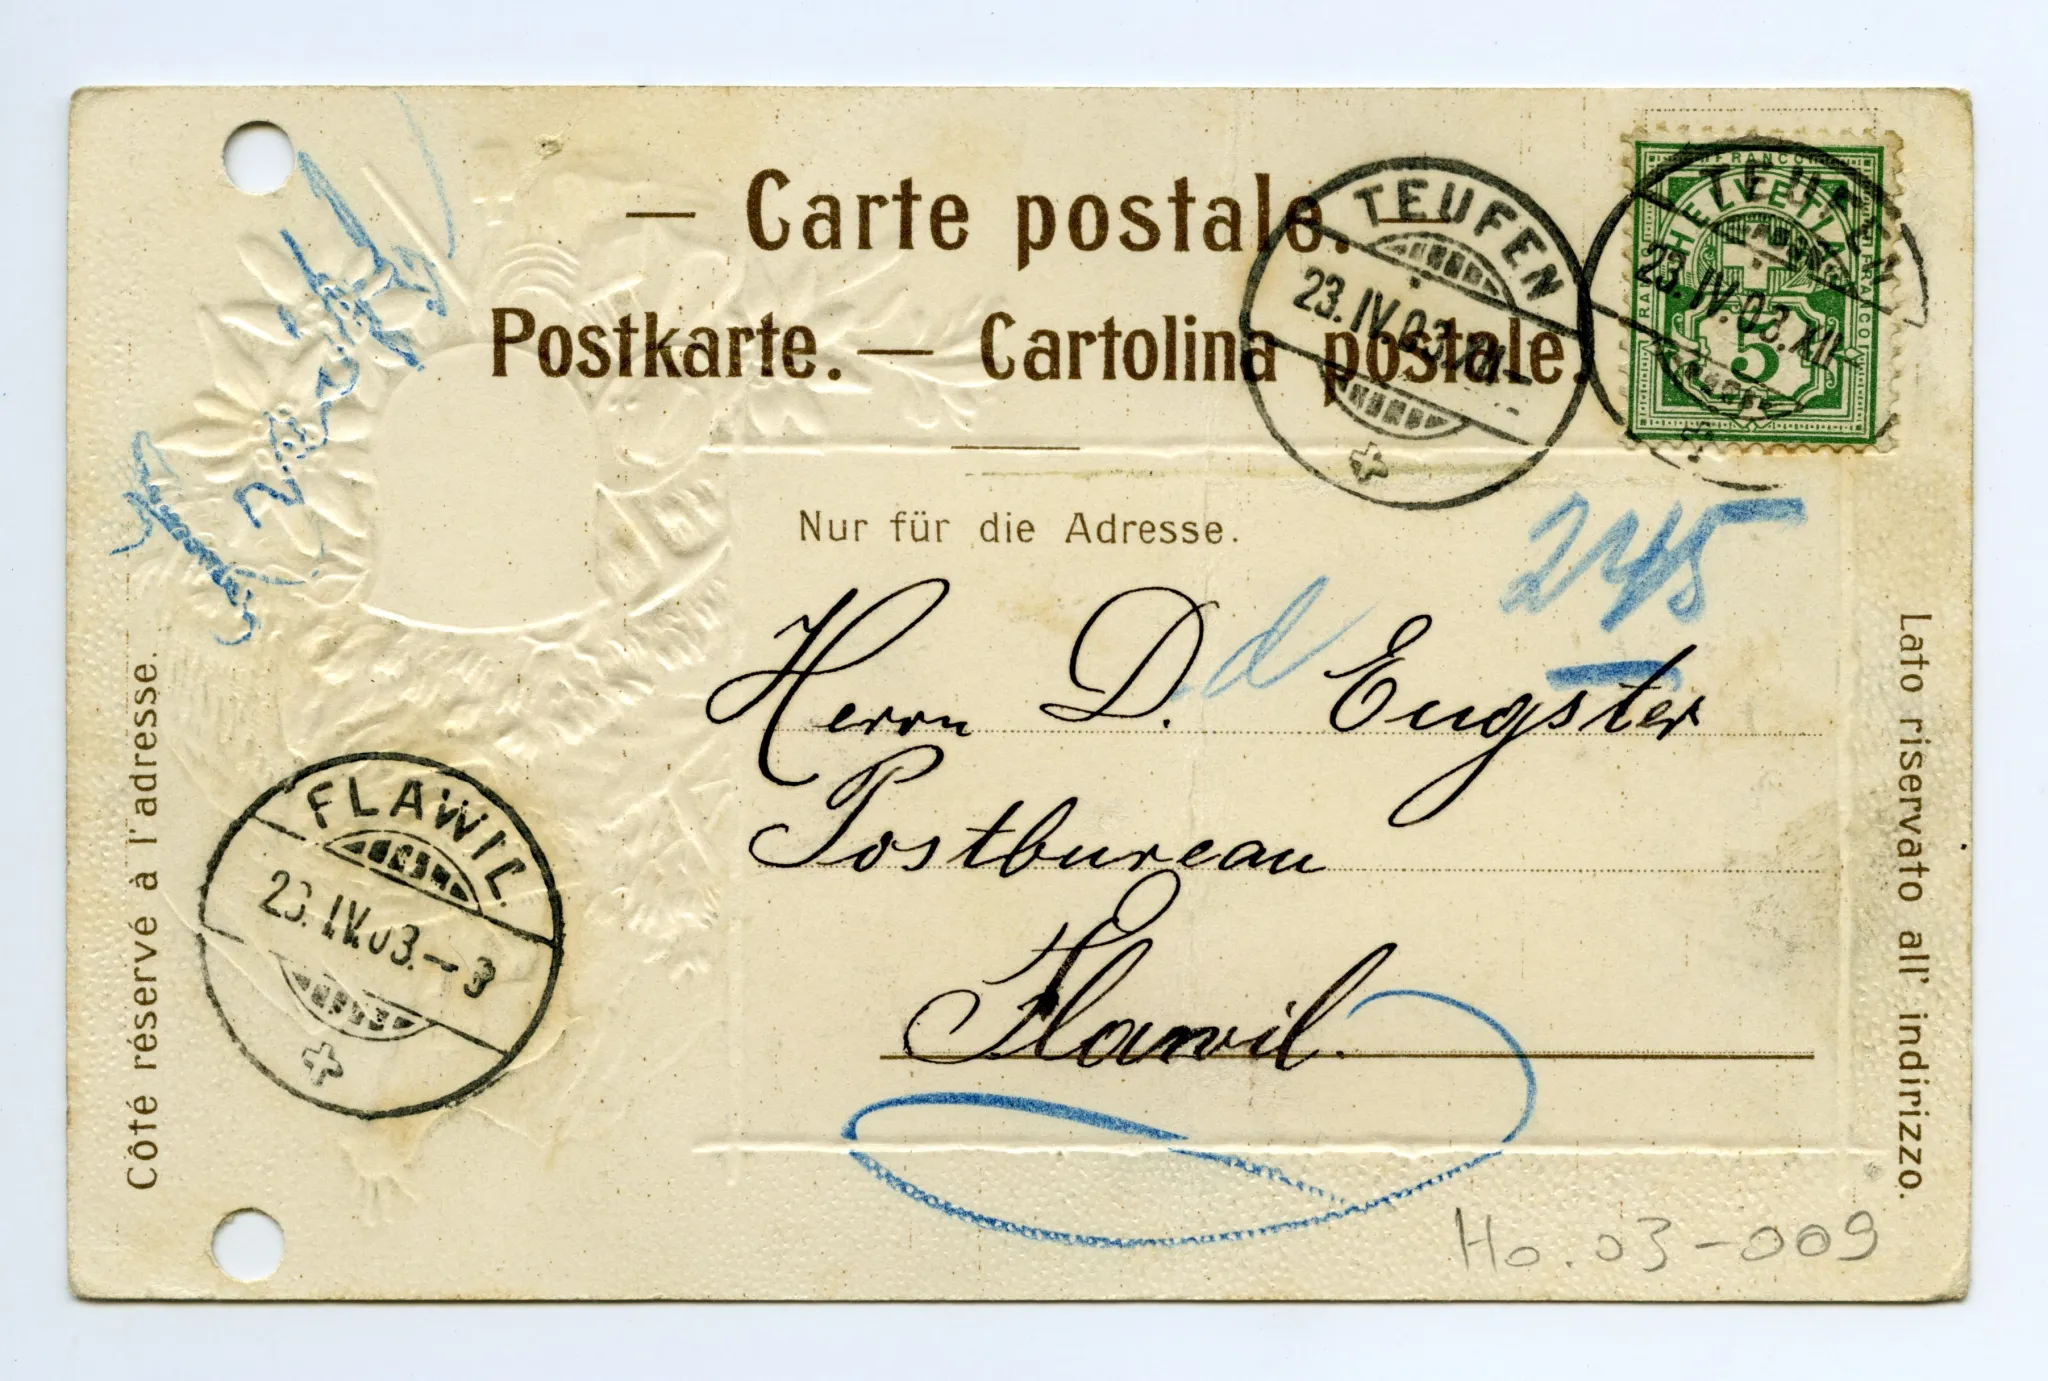 — Carte postale. —
Postkarte. — Cartolina postale.
TEUFEN
23.IV.03.XII-
FRANCO
HELVETIA
FRANCO
FRANCO
5
TEUFEN
23.IV.03.XII-
Nur für die Adresse.
245
d
Herrn D. Engster
Postbureau
Flawil.
FLAWIL
23.IV.03.-3
Côté réservé à l'adresse.
Lato riservato all' indirizzo.
Ho.03-009